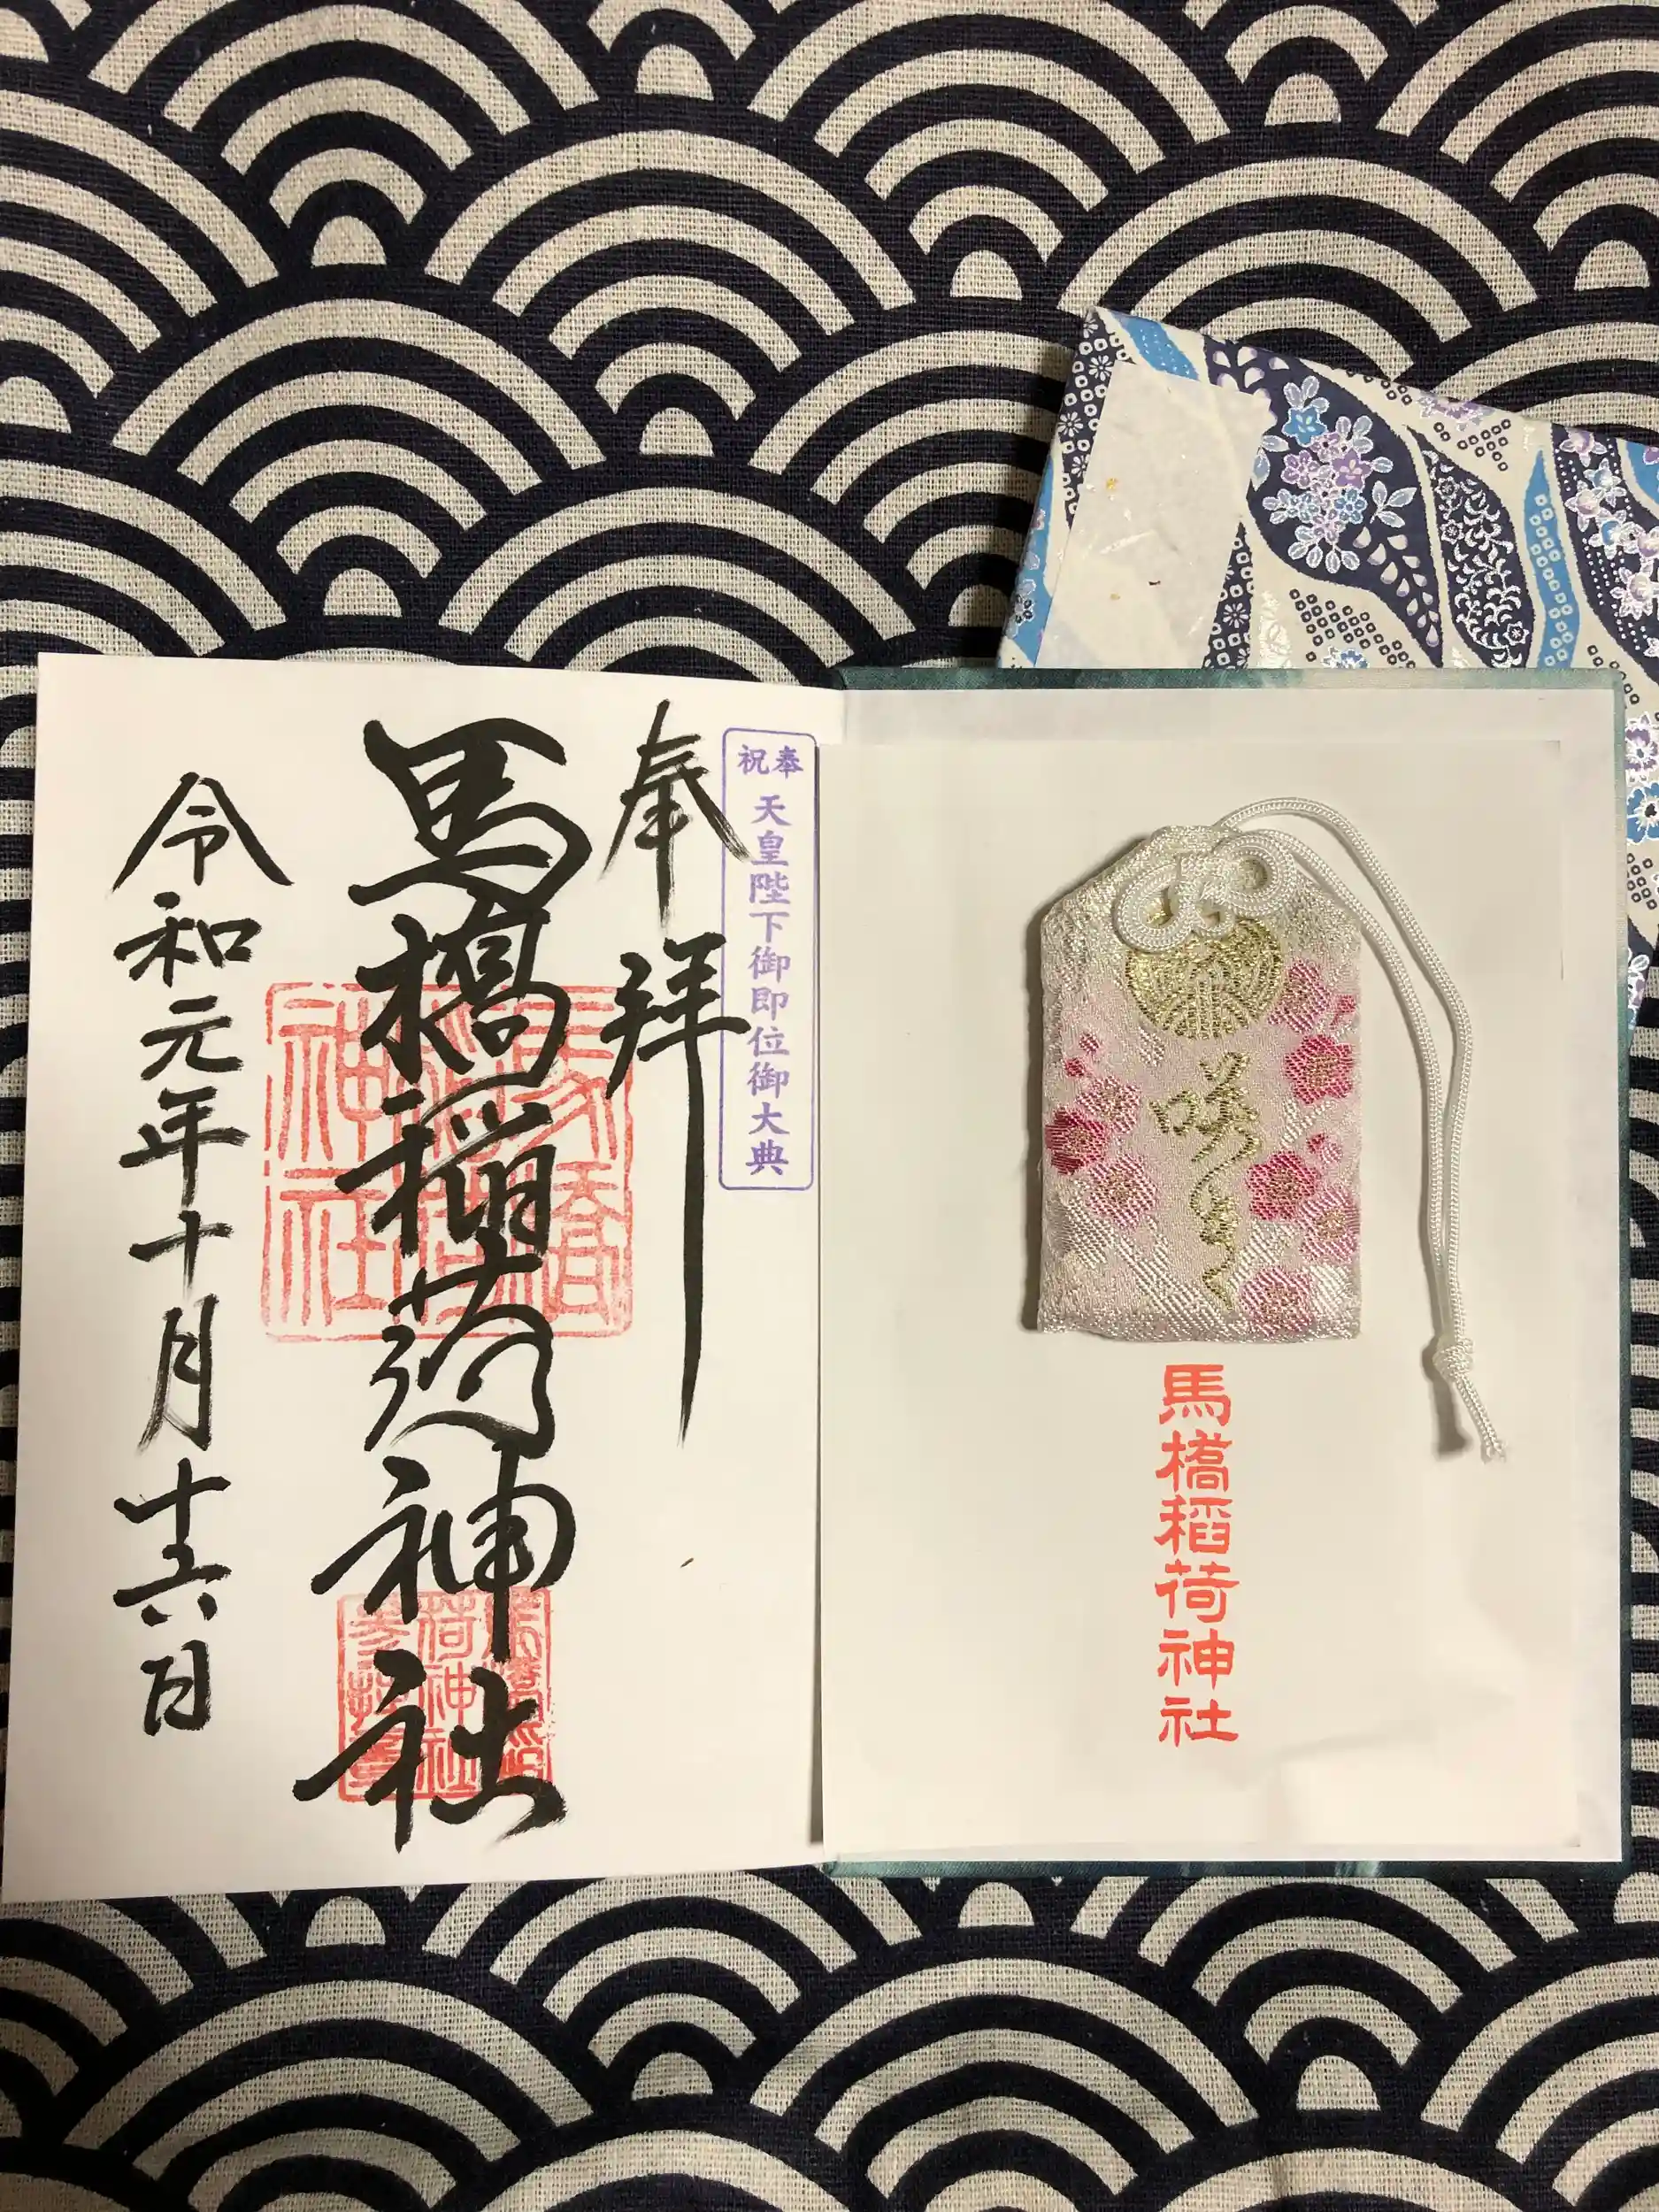 馬橋稲荷神社
奉祝
天皇陛下御即位御大典
奉拝
馬橋稲荷神社
令和元年十月十六日